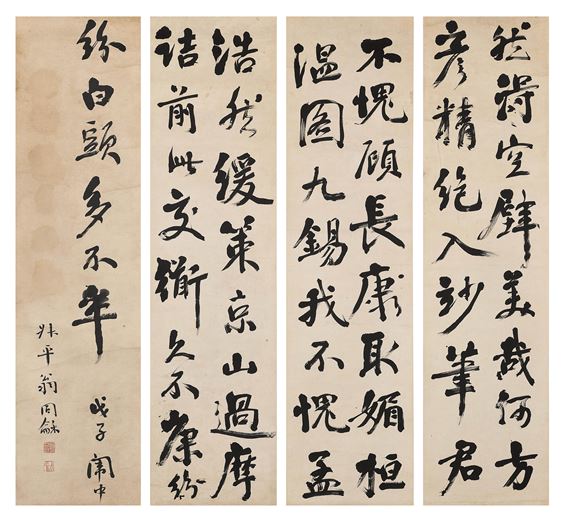 然得空壁美哉何方
彥精絕入妙筆君
不愧顧長康耻媚桓
溫圖九錫我不愧孟
浩然緩策京山過摩
詰前此交久不紛
紛白頭多不卒
戊子闈中
叔平翁同龢